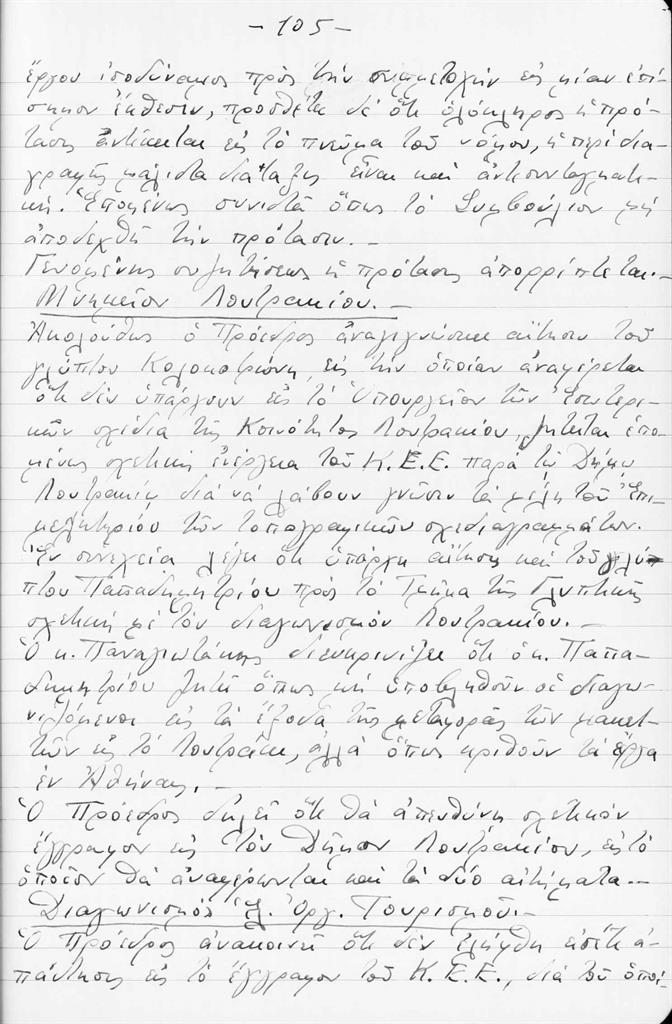 - 105 -
ἔργου ἰσοδύναμος πρὸς τὴν συμμετοχὴν εἰς μίαν ἐπί-
σημον ἔκθεσιν, προσθέτει δὲ ὅτι ὁλόκληρος ἡ πρό-
τασις ἀντίκειται εἰς τὸ πνεῦμα τοῦ νόμου, ἡ περὶ δια-
γραφῆς μάλιστα διάταξις εἶναι καὶ ἀντισυνταγματι-
κή. Ἑπομένως συνιστᾶ ὅπως τὸ Συμβούλιον μὴ
ἀποδεχθῆ τὴν πρότασιν. -
Γενομένης συζητήσεως ἡ πρότασις ἀπορρίπτεται. -
Μνημεῖον Λουτρακίου. -
Ἀκολούθως ὁ Πρόεδρος ἀναγιγνώσκει αἴτησιν τοῦ
γλύπτου Κολοκοτρώνη, εἰς τὴν ὁποίαν ἀναφέρεται
ὅτι δὲν ὑπάρχουν εἰς τὸ Ὑπουργεῖον τῶν Ἐσωτερι-
κῶν σχέδια τῆς Κοινότητος Λουτρακίου, ζητεῖται ἑπο-
μένως σχετικὴ ἐνέργεια τοῦ Κ.Ε.Ε. παρὰ τῷ Δήμῳ
Λουτρακίου διὰ νὰ λάβουν γνῶσιν τὰ μέλη τοῦ Ἐπι-
μελητηρίου τῶν τοπογραφικῶν σχεδιαγραμμάτων.
Ἐν συνεχείᾳ λέγει ὅτι ὑπάρχει αἴτησις καὶ τοῦ γλύ-
πτου Παπαδημητρίου πρὸς τὸ Τμῆμα τῆς Γλυπτικῆς
σχετικὴ μὲ τὸν διαγωνισμὸν Λουτρακίου. -
Ὁ κ. Παναγιωτάκης διευκρινίζει ὅτι ὁ κ. Παπα-
δημητρίου ζητεῖ ὅπως μὴ ὑποβληθοῦν οἱ διαγω-
νιζόμενοι εἰς τὰ ἔξοδα τῆς μεταφορᾶς τῶν μακετ-
τῶν εἰς τὸ Λουτράκι, ἀλλὰ ὅπως κριθοῦν τὰ ἔργα
ἐν Ἀθήναις. -
Ὁ Πρόεδρος δηλεῖ ὅτι θὰ ἀπευθύνη σχετικὸν
ἔγγραφον εἰς τὸν Δῆμον Λουτρακίου, εἰς τὸ
ὁποῖον θὰ ἀναφέρωνται καὶ τὰ δύο αἰτήματα. -
Διαγωνισμὸς Ἑλ. Ὀργ. Τουρισμοῦ. -
Ὁ Πρόεδρος ἀνακοινεῖ ὅτι δὲν ἐλήφθη εἰσέτι ἀ-
πάντησις εἰς τὸ ἔγγραφον τοῦ Κ.Ε.Ε., διὰ τοῦ ὁποί-